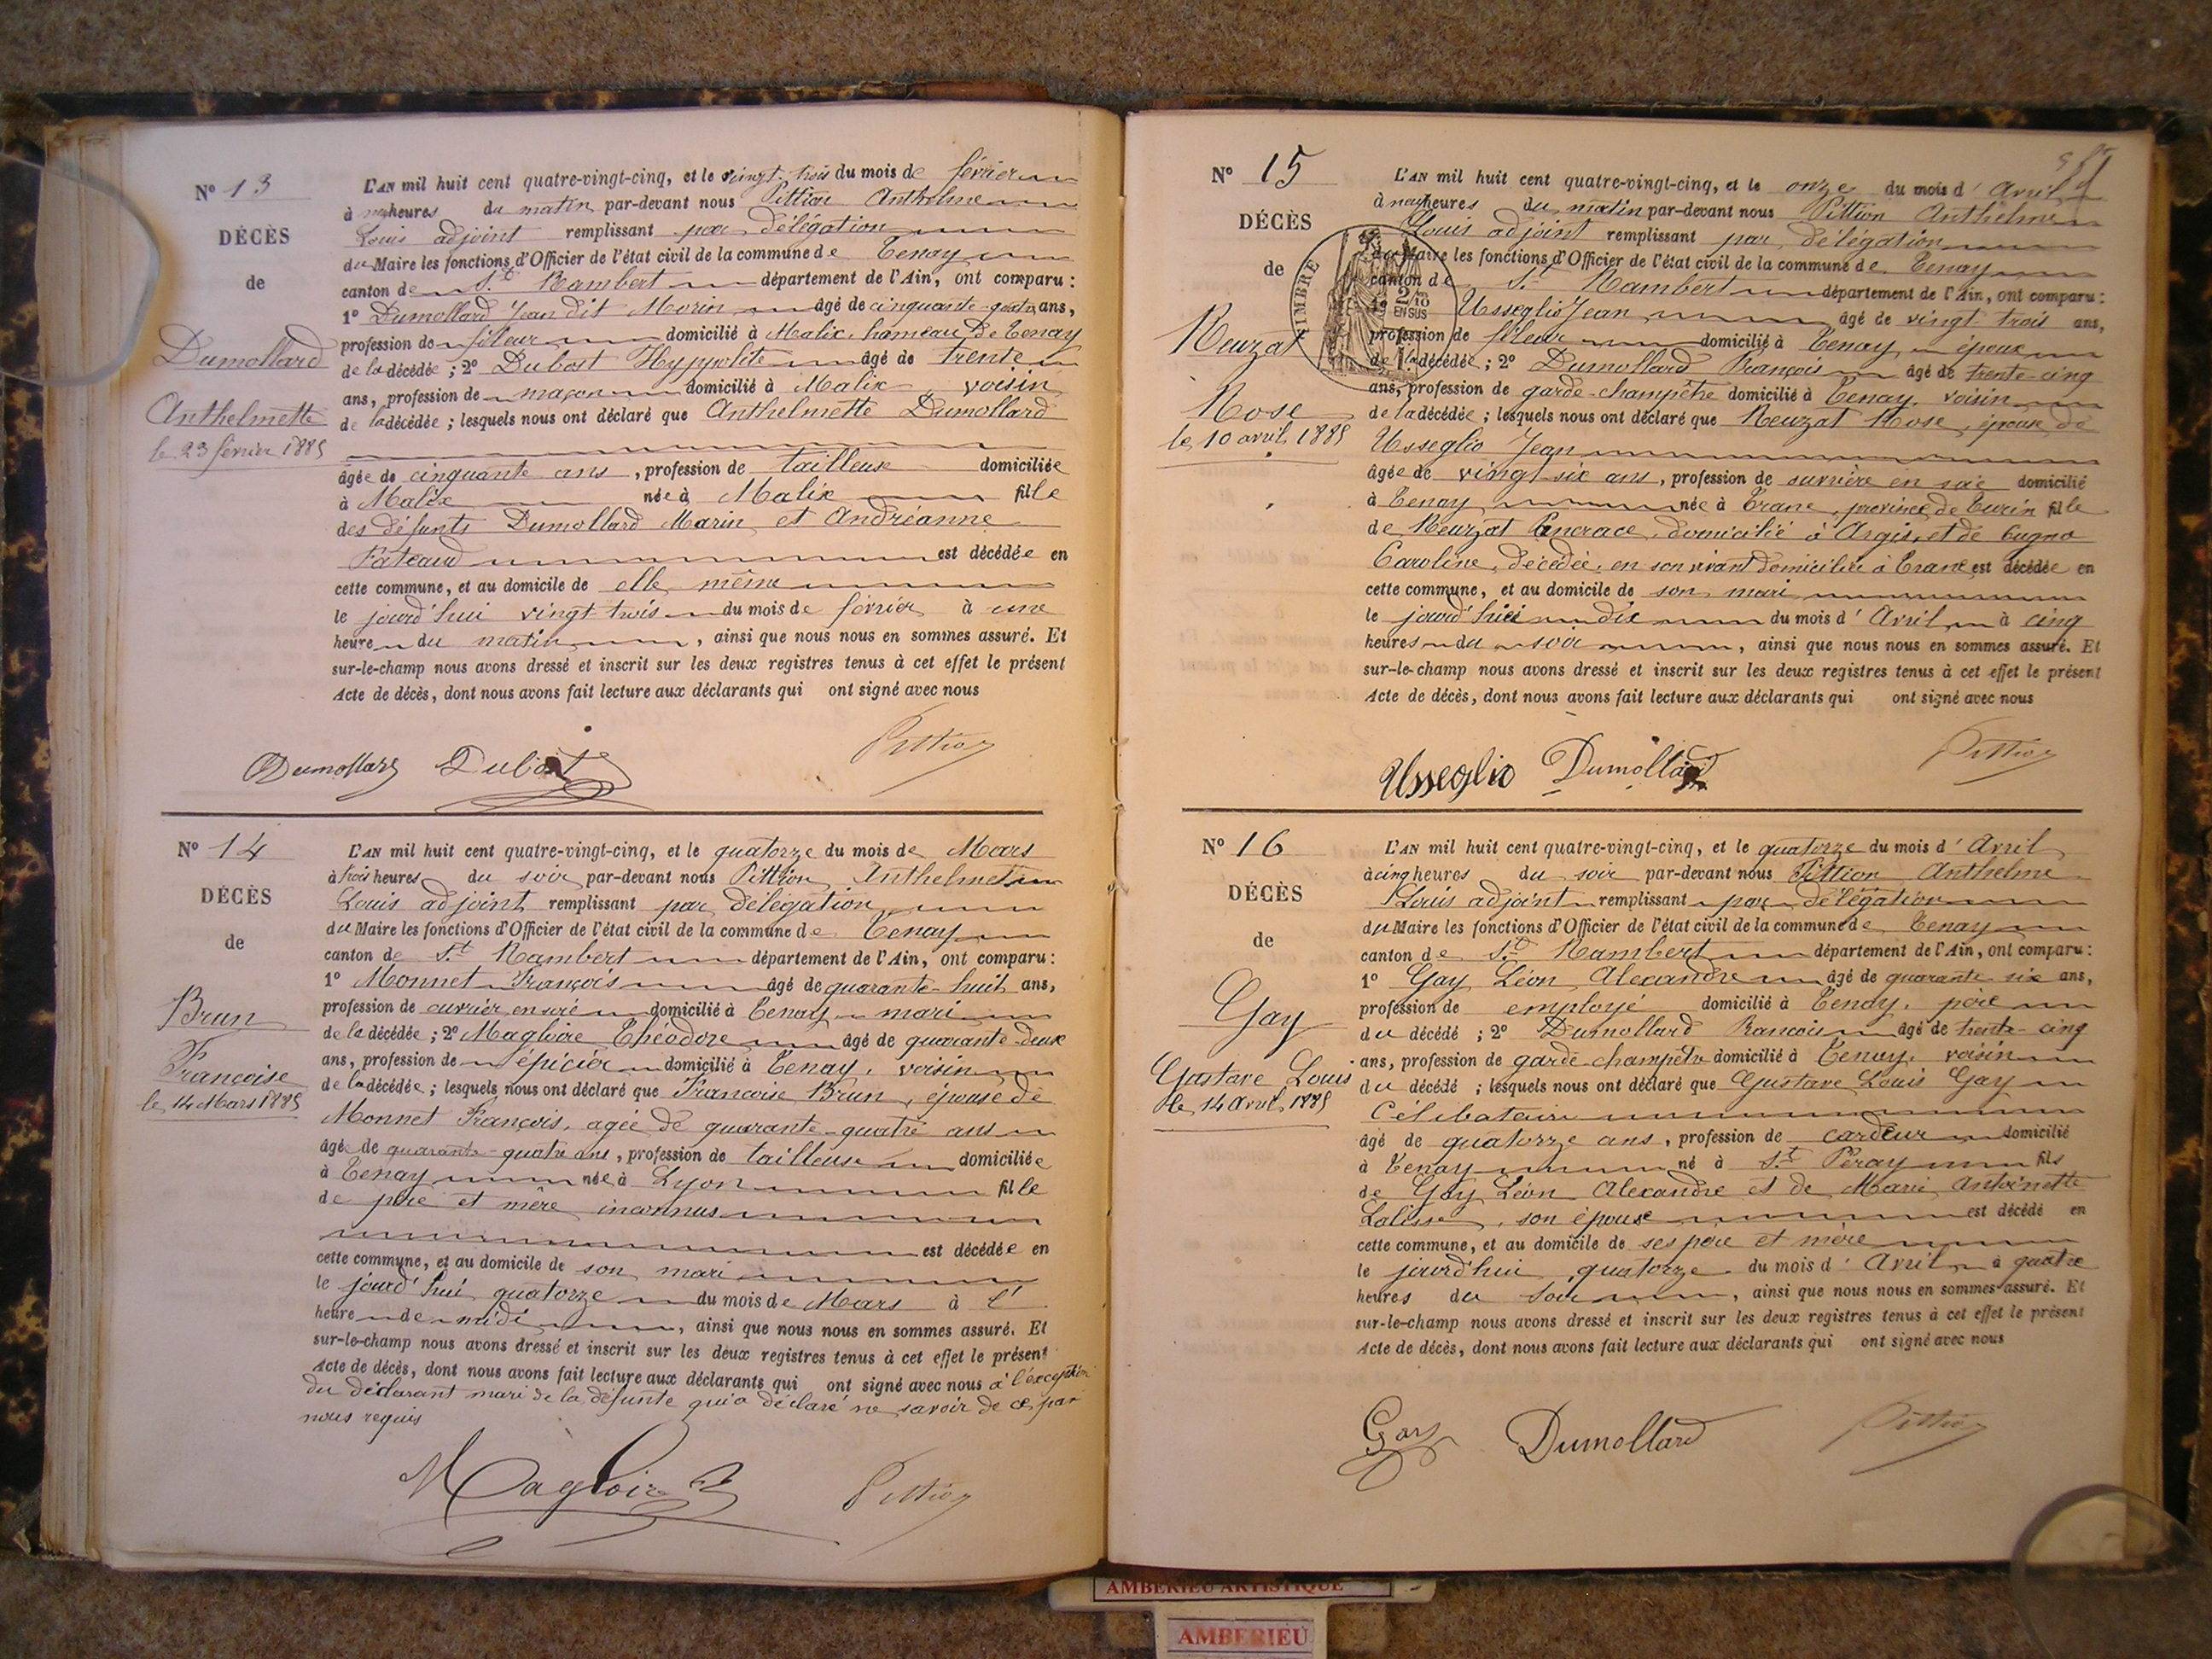 N° 13
DÉCÈS
de
Dumollard
Anthelmette
le 23 février 1885
L'AN mil huit cent quatre-vingt-cinq, et le vingt-trois du mois de février
à heures du matin par-devant nous Pittion Anthelme
Louis adjoint remplissant par délégation
du Maire les fonctions d'Officier de l'état civil de la commune de Tenay
canton de St Rambert département de l'Ain, ont comparu :
1° Dumollard Jean dit Morin âgé de cinquante-quatre ans,
profession de fileur domicilié à Malix, hameau de Tenay
de la décédée ; 2° Dubost Hyppolite âgé de trente
ans, profession de maçon domicilié à Malix, voisin
de la décédée ; lesquels nous ont déclaré que Anthelmette Dumollard
âgée de cinquante ans, profession de tailleuse domiciliée
à Malix née à Malix fille
des défunts Dumollard Marin et Andréanne
est décédée en
cette commune, et au domicile de elle même
le jourd'hui vingt-trois du mois de février à une
heure du matin, ainsi que nous nous en sommes assuré. Et
sur-le-champ nous avons dressé et inscrit sur les deux registres tenus à cet effet le présent
Acte de décès, dont nous avons fait lecture aux déclarants qui ont signé avec nous
Dumollard Dubost Pittion
N° 14
DÉCÈS
de
Brun
Françoise
le 14 Mars 1885
L'AN mil huit cent quatre-vingt-cinq, et le quatorze du mois de Mars
à trois heures du soir par-devant nous Pittion Anthelme
Louis adjoint remplissant par délégation
du Maire les fonctions d'Officier de l'état civil de la commune de Tenay
canton de St Rambert département de l'Ain, ont comparu :
1° Monnet François âgé de quarante-huit ans,
profession de ouvrier en soie domicilié à Tenay mari
de la décédée ; 2° Magloire Théodore âgé de quarante-deux
ans, profession de épicier domicilié à Tenay, voisin
de la décédée ; lesquels nous ont déclaré que Françoise Brun, épouse de
Monnet François, agée de quarante-quatre ans
âgée de quarante-quatre ans, profession de tailleuse domiciliée
à Tenay née à Lyon fille
de père et mère inconnus
est décédée en
cette commune, et au domicile de son mari
le jourd'hui quatorze du mois de Mars à l'
heure de midi, ainsi que nous nous en sommes assuré. Et
sur-le-champ nous avons dressé et inscrit sur les deux registres tenus à cet effet le présent
Acte de décès, dont nous avons fait lecture aux déclarants qui ont signé avec nous à l'exception
du déclarant mari de la défunte qui a déclaré ne savoir de ce par
nous requis
Magloire Pittion
N° 15
DÉCÈS
de
Reuzat
Rose
le 10 avril 1885
TIMBRE
2/10
EN SUS
L'AN mil huit cent quatre-vingt-cinq, et le onze du mois d'Avril
à neuf heures du matin par-devant nous Pittion Anthelme
Louis adjoint remplissant par délégation
du Maire les fonctions d'Officier de l'état civil de la commune de Tenay
canton de St Rambert département de l'Ain, ont comparu :
1° Usseglio Jean âgé de vingt-trois ans,
profession de fileur domicilié à Tenay époux
de la décédée ; 2° Dumollard François âgé de trente-cinq
ans, profession de garde-champêtre domicilié à Tenay, voisin
de la décédée ; lesquels nous ont déclaré que Reuzat Rose, épouse de
Usseglio Jean
âgée de vingt-six ans, profession de ouvrière en soie domicilié
à Tenay née à Trane, province de Turin fille
de Reuzat Pancrace, domicilié à Argis, et de Cugno
Caroline, décédée, en son vivant domiciliée à Trane est décédée en
cette commune, et au domicile de son mari
le jourd'hui dix du mois d'Avril à cinq
heures du soir, ainsi que nous nous en sommes assuré. Et
sur-le-champ nous avons dressé et inscrit sur les deux registres tenus à cet effet le présent
Acte de décès, dont nous avons fait lecture aux déclarants qui ont signé avec nous
Usseglio Dumollard Pittion
N° 16
DÉCÈS
de
Gay
Gustave Louis
le 14 avril 1885
L'AN mil huit cent quatre-vingt-cinq, et le quatorze du mois d'Avril
à cinq heures du soir par-devant nous Pittion Anthelme
Louis adjoint remplissant par délégation
du Maire les fonctions d'Officier de l'état civil de la commune de Tenay
canton de St Rambert département de l'Ain, ont comparu :
1° Gay Léon Alexandre âgé de quarante-six ans,
profession de employé domicilié à Tenay, père
du décédé ; 2° Dumollard François âgé de trente-cinq
ans, profession de garde-champêtre domicilié à Tenay, voisin
du décédé ; lesquels nous ont déclaré que Gustave Louis Gay
Célibataire
âgé de quatorze ans, profession de cardeur domicilié
à Tenay né à St Péray fils
de Gay Léon Alexandre et de Marie Antoinette
Lalisse, son épouse est décédé en
cette commune, et au domicile de ses père et mère
le jourd'hui quatorze du mois d'Avril à quatre
heures du soir, ainsi que nous nous en sommes assuré. Et
sur-le-champ nous avons dressé et inscrit sur les deux registres tenus à cet effet le présent
Acte de décès, dont nous avons fait lecture aux déclarants qui ont signé avec nous
Gay Dumollard Pittion
AMBERIEU ARTISTIQUE
AMBERIEU